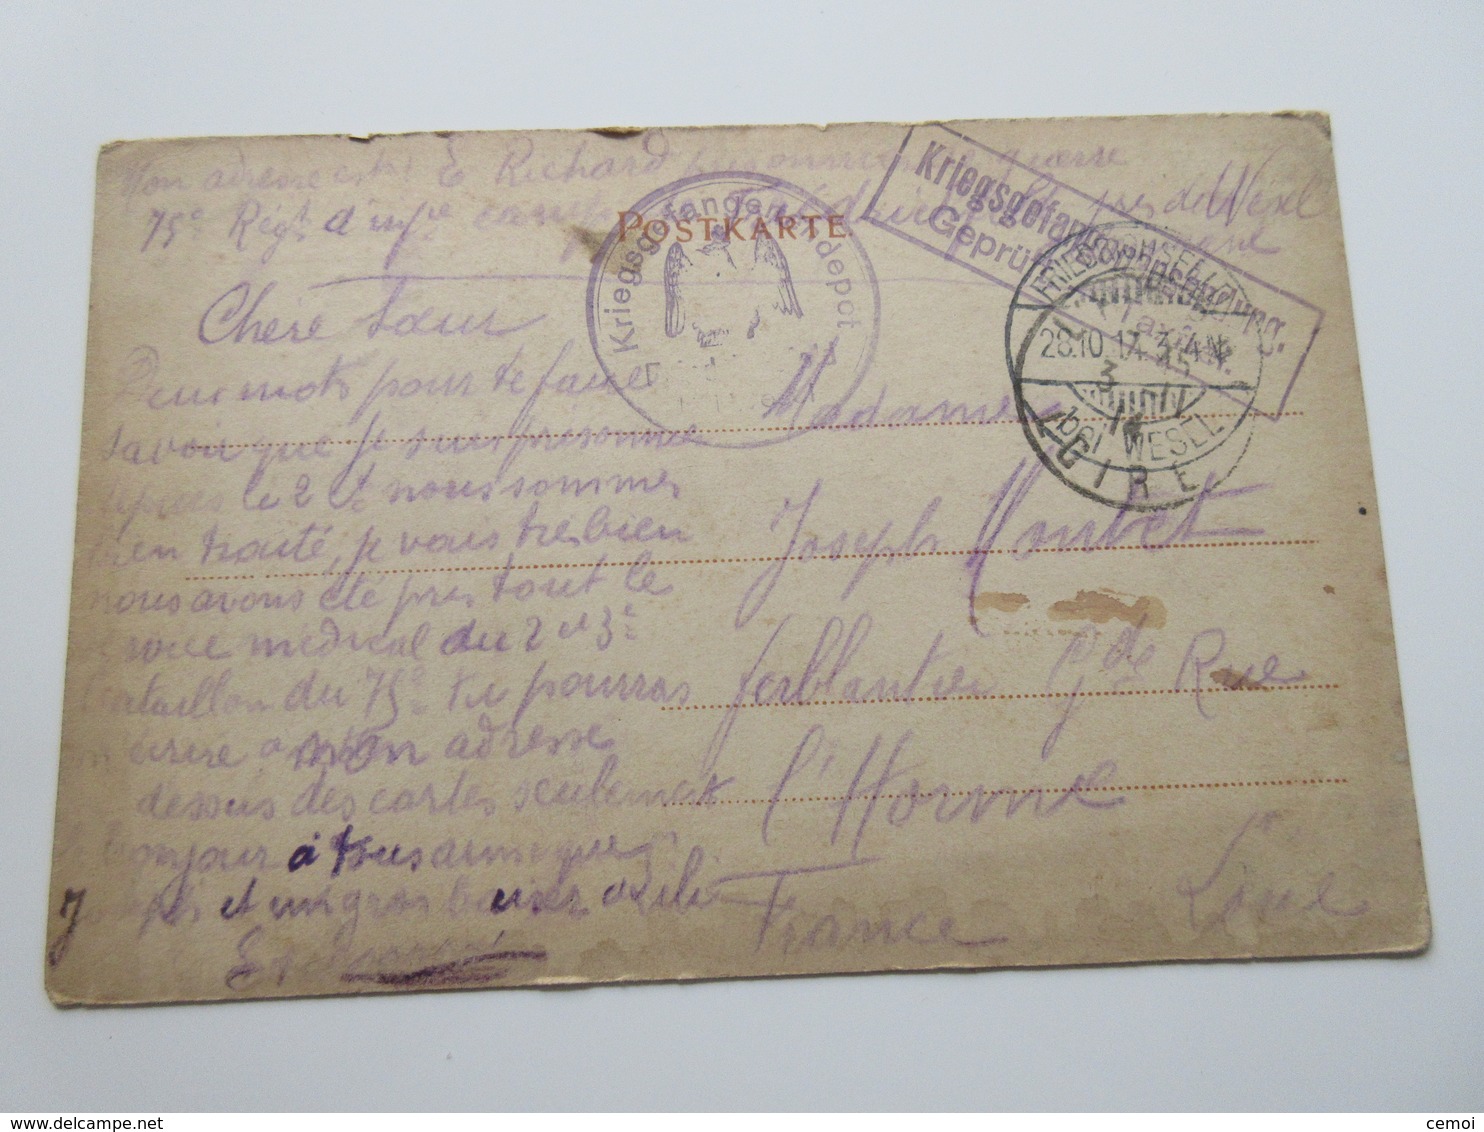 Mon adresse est: E Richard prisonnier de guerre
75e Régt d'infie camp Friedrichsfeld près de Wesel
POSTKARTE
Kriegsgefangenendepot
Kriegsgefangenensendung.
Geprüft
28.10.14. 3-4N.
(bei WESEL)
Chère Sœur
Deux mots pour te faire
savoir que je suis prisonnier
depuis le 2 7bre nous sommes
bien traité, je vais très bien
nous avons été pris tout le
service médical du 2 et 3e
bataillon du 75e tu pourras
m'écrire a mon adresse
dessus des cartes seulement
bonjour à tous ainsi que
et un gros baiser
Madame
Joseph Montet
ferblantier Gde Rue
l'Horme
Loire
France
cemoi